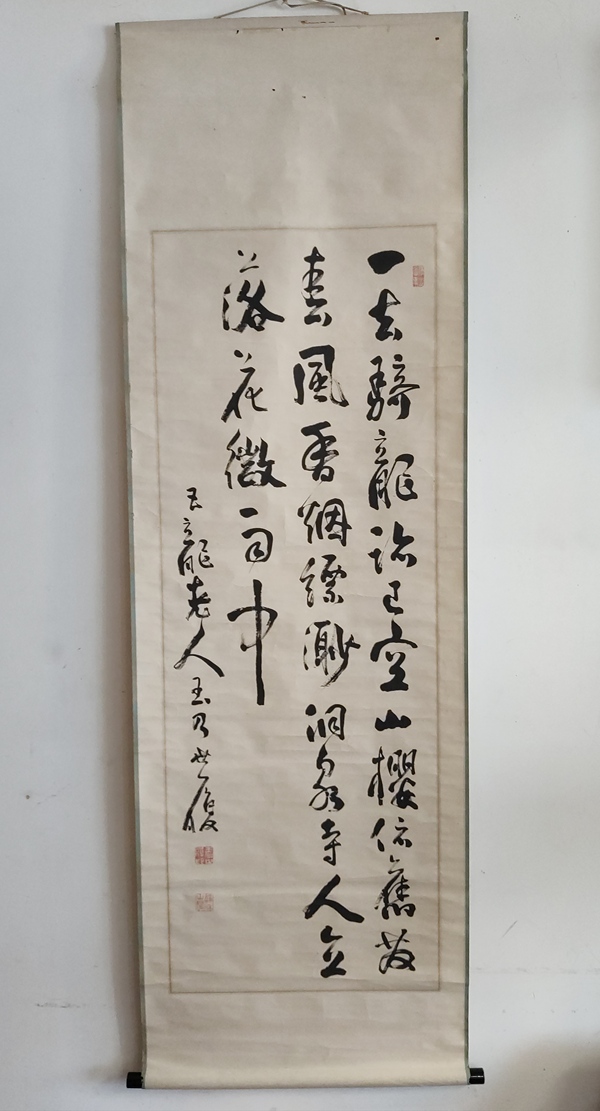 一去騎龍跡已空山櫻依舊發
春風香烟縹渺洞泉寺人立
落花微雨中
五龍老人玉乃世履